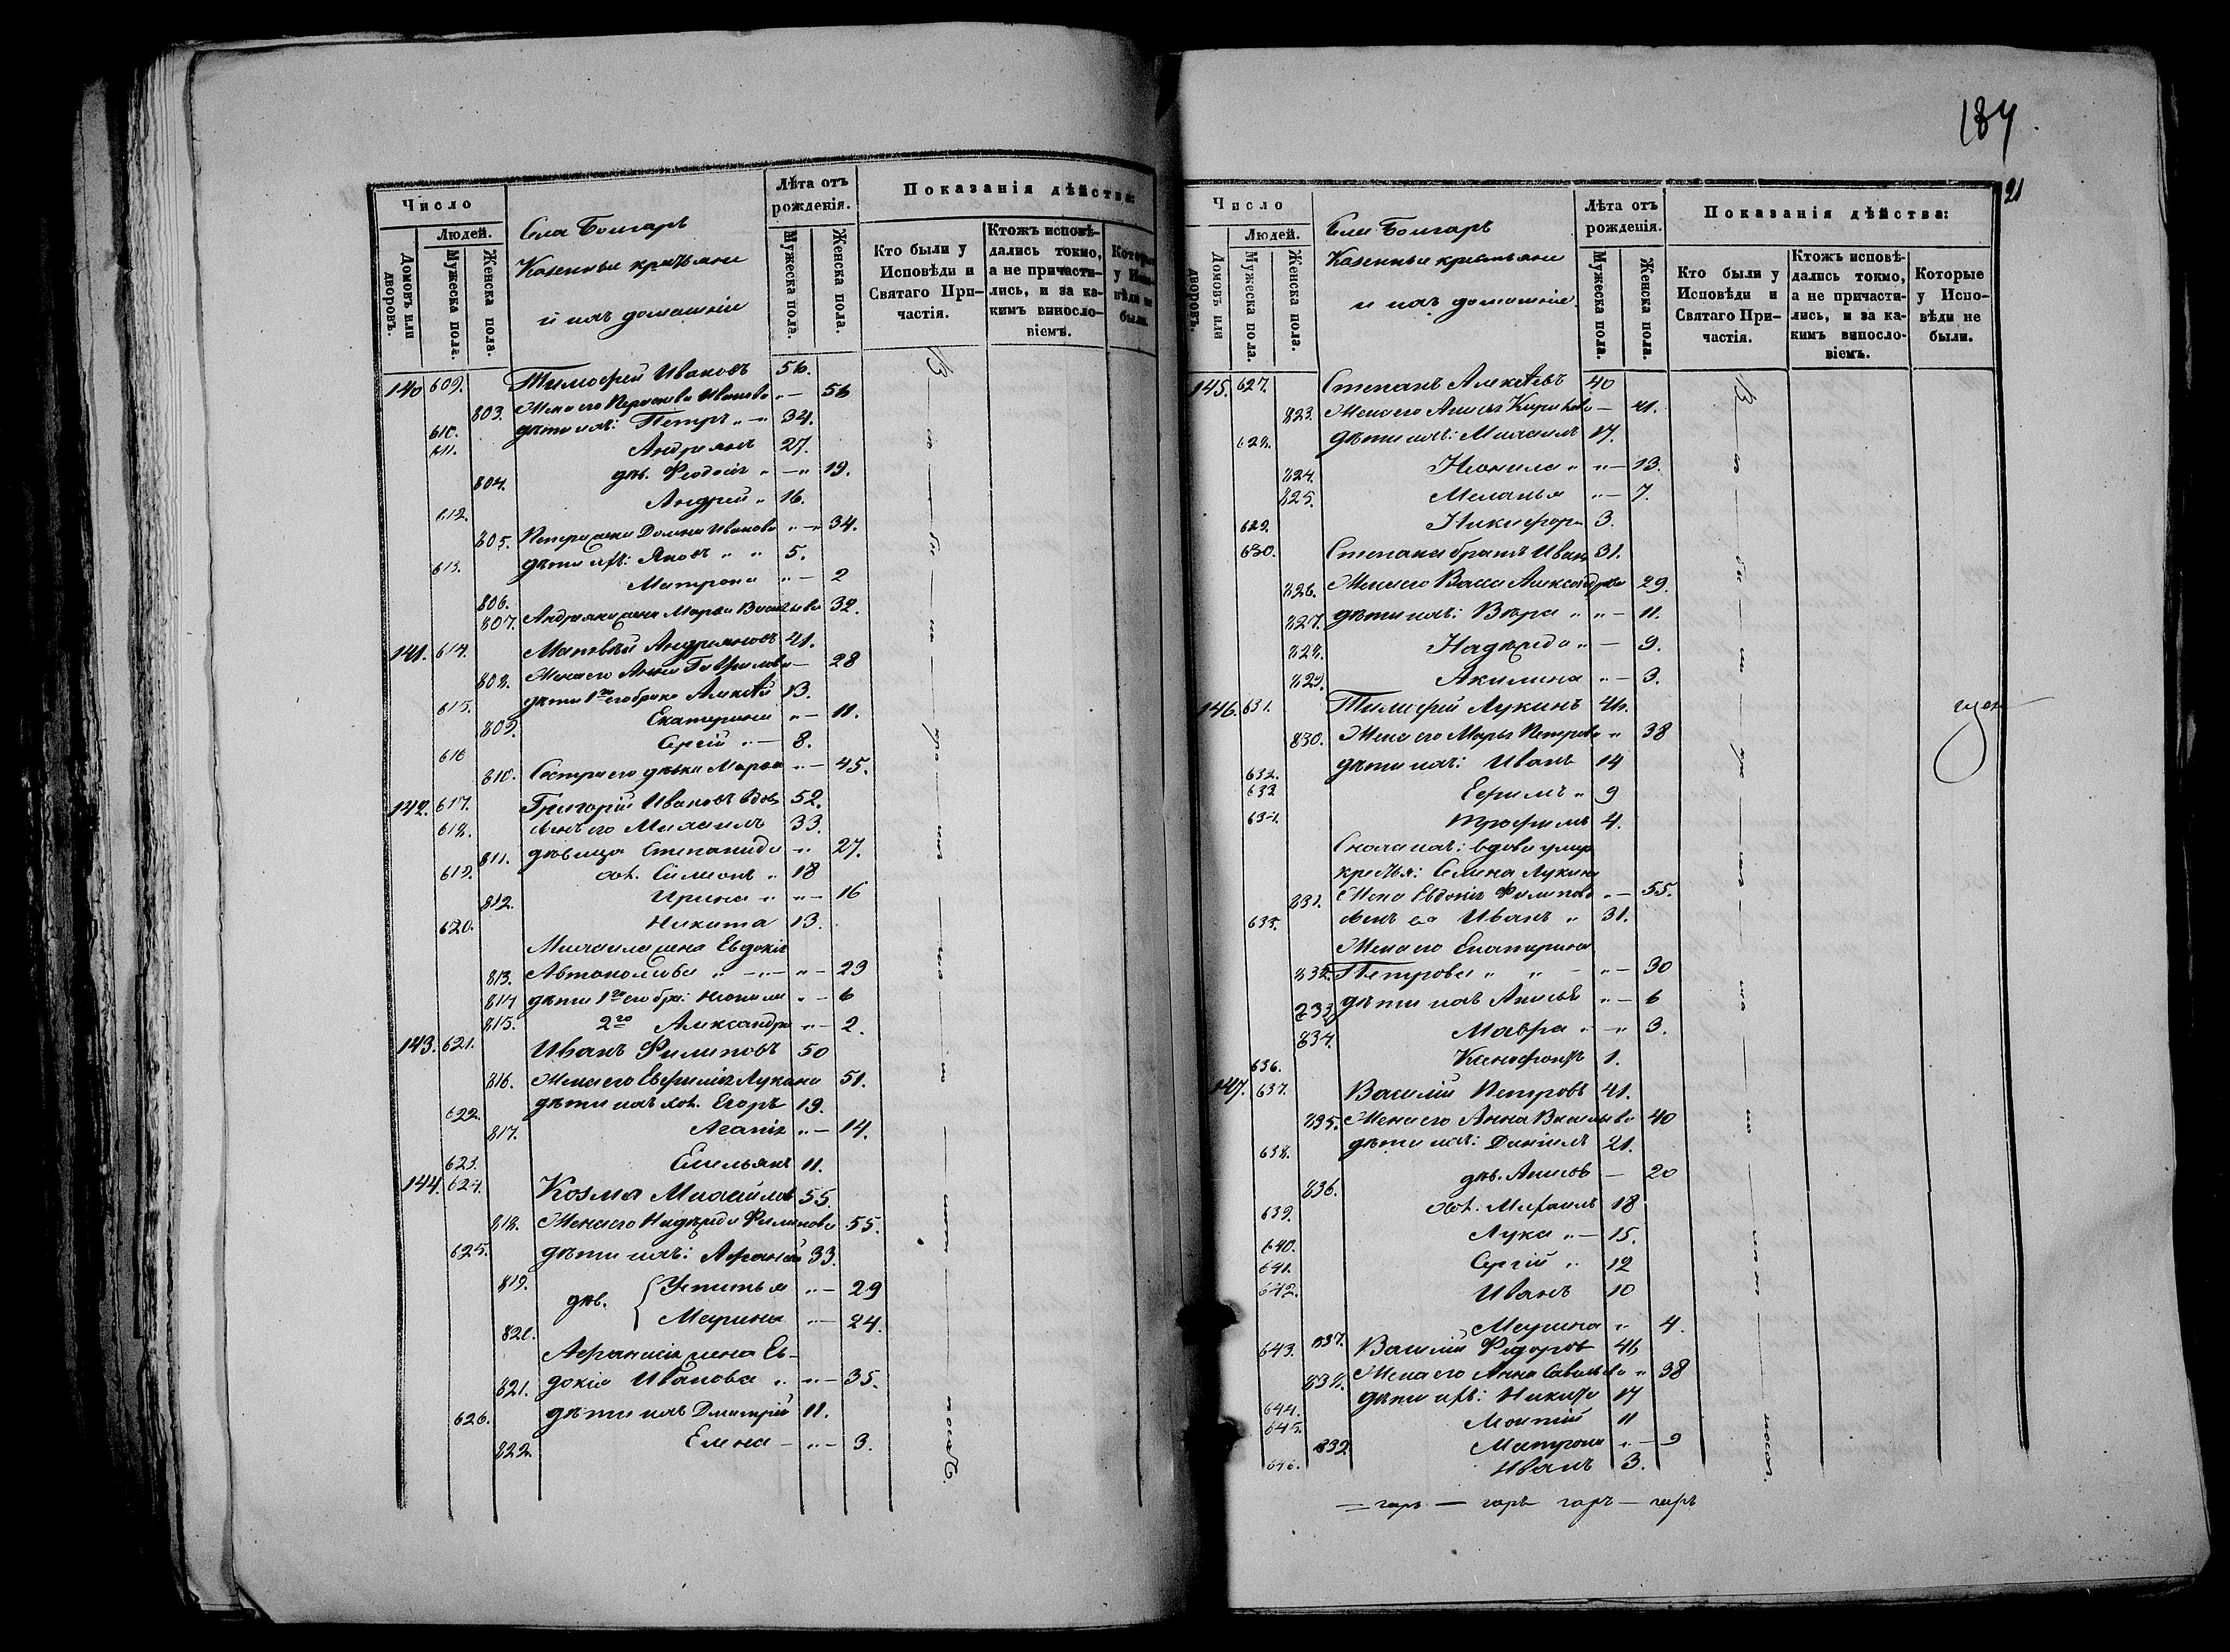 Число
Людей.
Домовъ или дворовъ.
Мужеска пола.
Женска пола.
Села Болгаръ
Казенные крестьяне
и ихъ домашніи
Лѣта отъ рожденія.
Мужеска пола.
Женска пола.
Показанія дѣйства:
Кто были у Исповѣди и Святаго Причастія.
Ктожъ исповѣдались токмо, а не причастились, и за какимъ винословіемъ.
Которые у Исповѣди не были.
140 609. Тимофей Ивановъ 56.
803. Жена его Ивановa „ — 56
610. дѣти ихъ: Петръ „ — „ 34.
611. Андріянъ 27.
804. дѣв. Феодосія „ — „ 19.
612. Андрей „ 16.
805. Петра жена Домна Иванова „ — „ 34.
613. дѣти ихъ: Яковъ „ „ 5.
806. Матрона „ — 2
807. Андріяна жена Марья Васильева 32.
141. 614. Матвѣй Андріяновъ 41.
808. Жена его Анна Гаврилова — 28
615. дѣти 1го его брака Алексѣй 13.
809. Екатерина „ — 11.
616 Сергій „ — 8.
810. Сестра его дѣвка Марья „ — 45.
142. 617. Григорій Ивановъ вдов 52.
618. сынъ его Михаилъ 33.
811. дѣвица Степанида „ 27.
619. хол. Симеонъ „ 18
812. Ирина „ „ — 16
620. Никита 13.
Михаила жена Евдокія
813. Автономова „ — „ — „ — 29
814 дѣти 1го его бра: Неонила „ — 6
815. 2го Александра „ — 2.
143. 621. Иванъ Филиповъ 50
816. Жена его Евфимія Лукина 51.
622. дѣти ихъ хол. Егоръ 19.
817. Агапія „ — 14.
623. Емельянъ 11.
144. 624. Козма Михайловъ 55.
818. Жена его Надежда Филипова 55.
625. дѣти ихъ: Афанасій 33.
819. дѣв. Устинья „ — 29
820. Марина „ — 24.
Афанасія жена Ев-
821. докія Иванова „ „ — 35.
626. дѣти ихъ Дмитрій 11.
822. Елена — „ — 3.
184.
21
Число
Людей.
Домовъ или дворовъ.
Мужеска пола.
Женска пола.
Села Болгаръ
Казенные крестьяне
и ихъ домашніе
Лѣта отъ рожденія.
Мужеска пола.
Женска пола.
Показанія дѣйства:
Кто были у Исповѣди и Святаго Причастія.
Ктожъ исповѣдались токмо, а не причастились, и за какимъ винословіемъ.
Которые у Исповѣди не были.
145. 627. Степанъ Алексѣевъ 40
823. Жена его Анисья — 41.
628. дѣти ихъ: Михаилъ 17.
824. Неонила „ „ — 13.
825. Меланья „ — 7.
629. Никифоръ 3.
630. Степана братъ Иванъ 31.
826. Жена его Васса Александрова 29.
827. дѣти ихъ: Вѣра „ „ — 11.
828. Надежда „ — 9.
829. Акилина „ — 3.
146. 631. Тимофей Лукинъ 46.
830. Жена его Марья Петрова „ 38
632. дѣти ихъ: Иванъ 14
633 Ефимъ „ 9
634. Трофимъ 4.
Сноха ихъ: вдова умер
крестья: Семена Лукина
831. Жена Евдокія Филипова „ — 55.
635. сынъ ея Иванъ „ 31.
Жена его Екатерина
832. Петрова „ „ — „ — 30
833 дѣти ихъ Анисья „ — 6
834. Мавра „ — „ 3.
636. Ксенофонтъ 1.
147. 637. Василій Петровъ 41.
835. Жена его Анна Васильева 40
638. дѣти ихъ: Даніилъ 21.
836. дѣв. Анисья — 20
639. хол. Михаилъ 18
640. Лука „ — 15.
641. Сергій „ 12
642. Иванъ 10
837. Марина „ 4.
643. Василій Федоровъ 46
838. Жена его Анна Савельева „ 38
644. дѣти ихъ: Никита 17
645. 11
839 Матрона „ — 9
646. Иванъ 3.